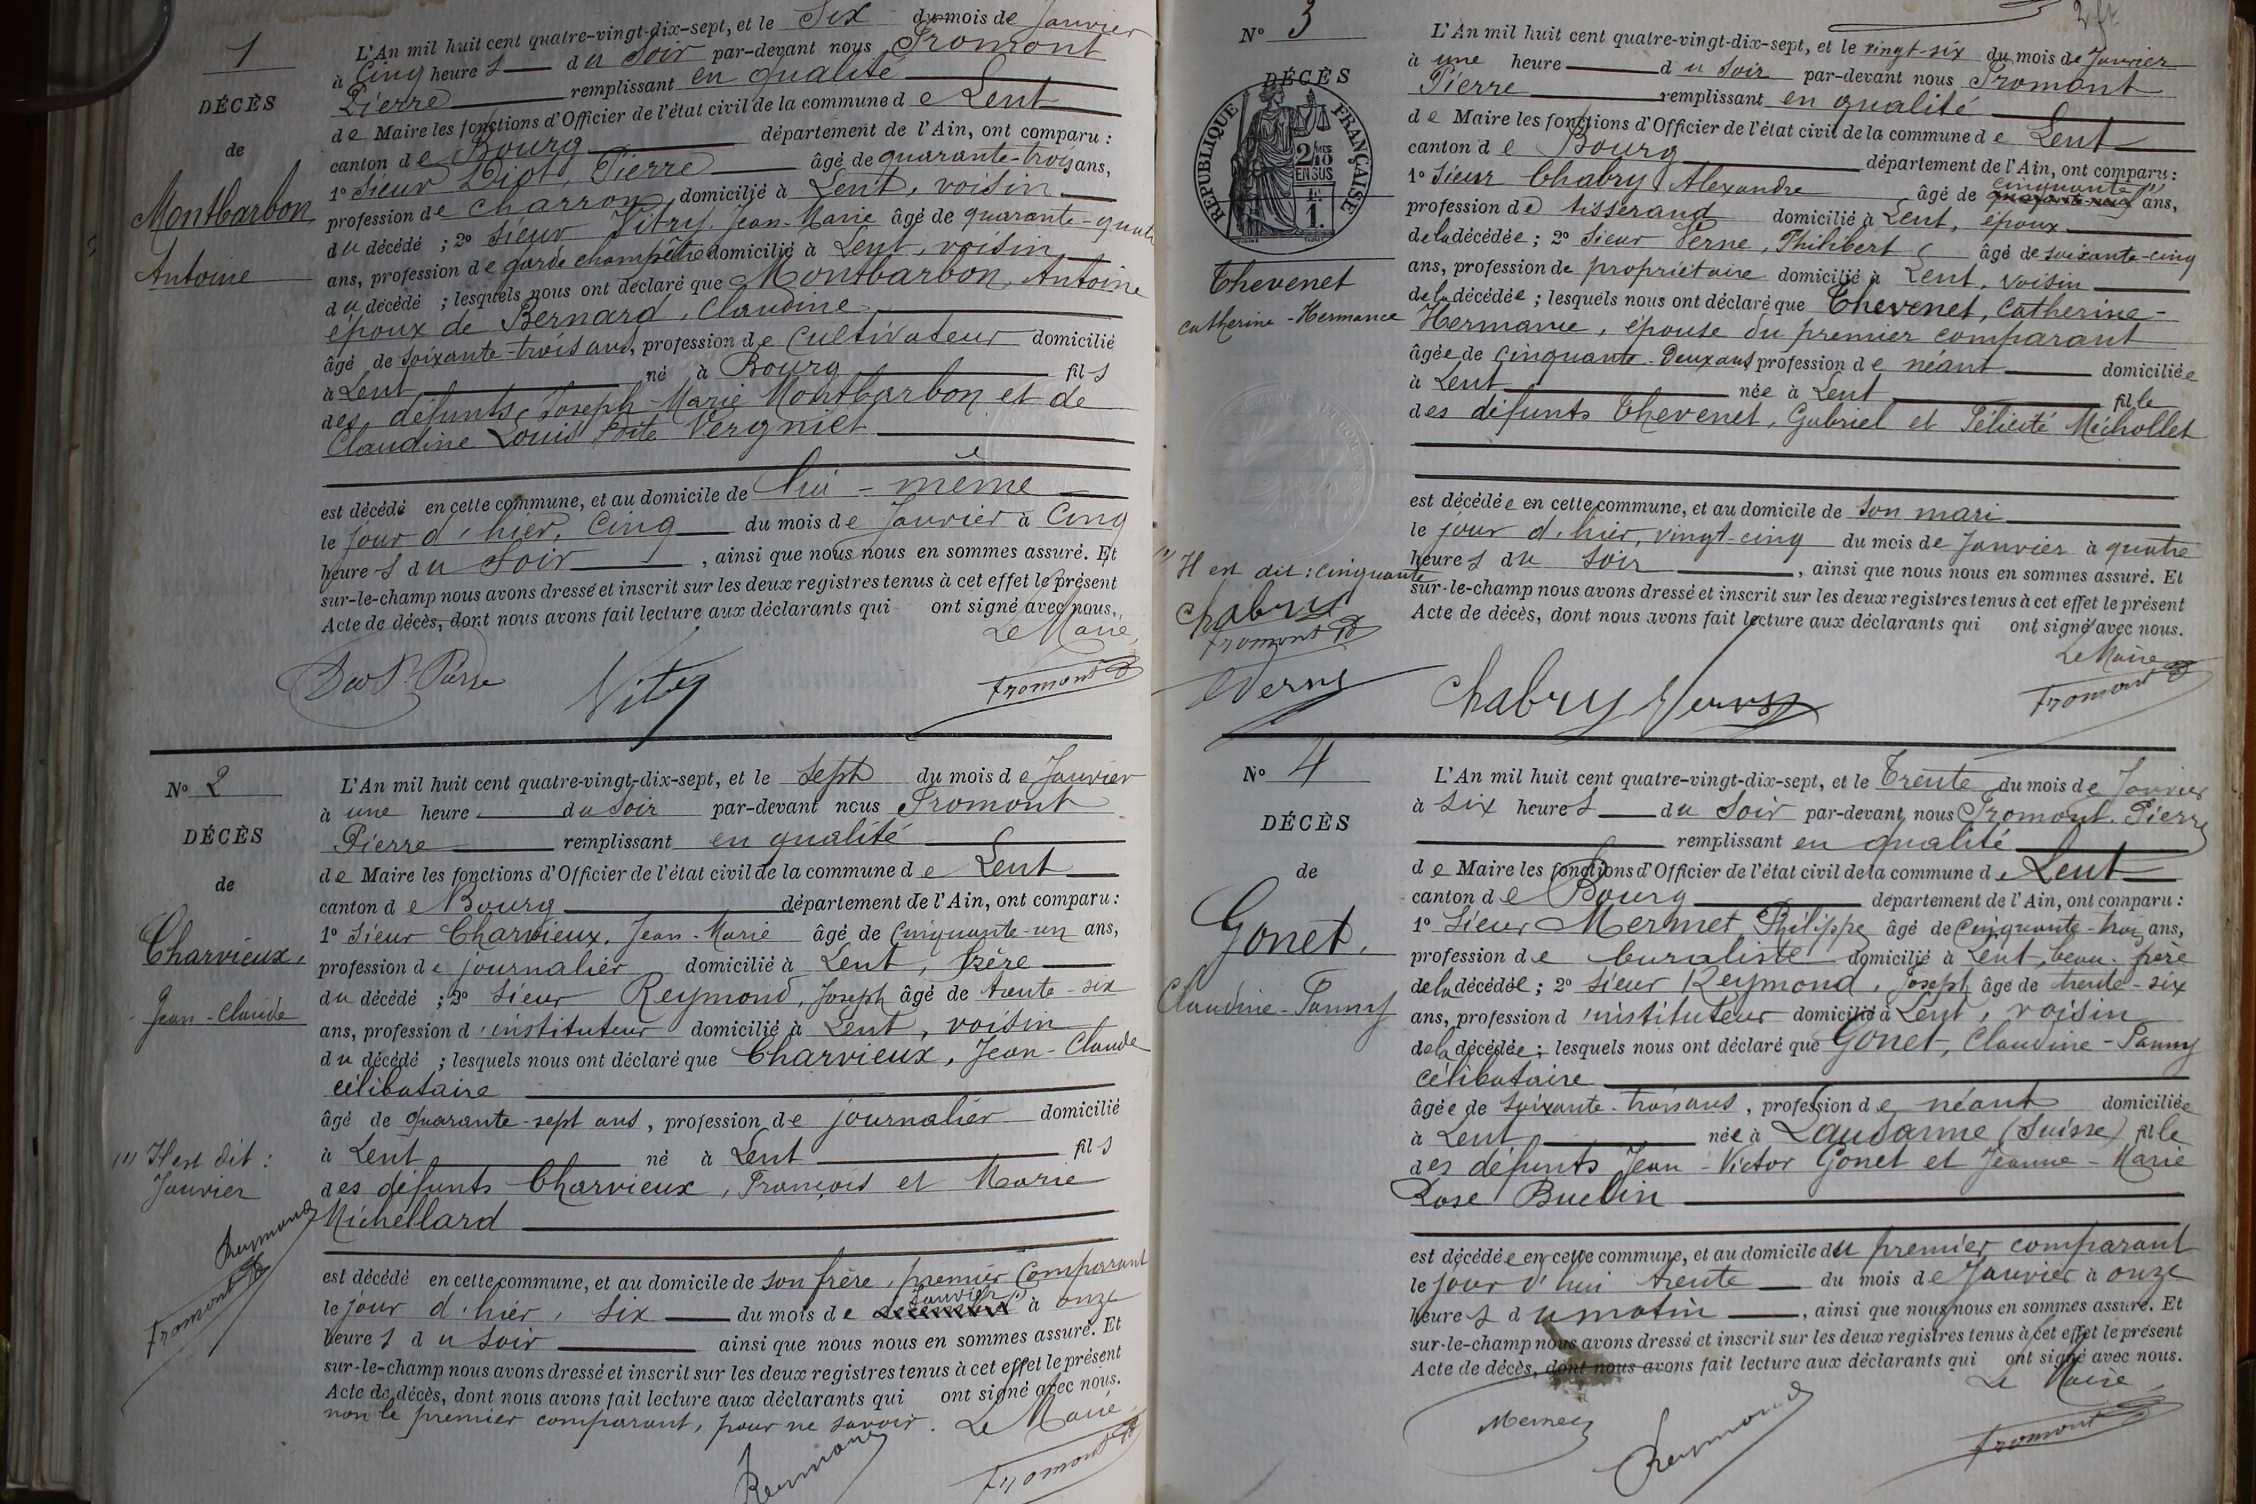 1
DÉCÈS
de
Montbarbon
Antoine
L'An mil huit cent quatre-vingt-dix-sept, et le Six du mois de Janvier
à Cinq heures du Soir par-devant nous Fromont
Pierre remplissant en qualité
de Maire les fonctions d'Officier de l'état civil de la commune de Lent
canton de Bourg département de l'Ain, ont comparu :
1º Sieur Diot, Pierre âgé de quarante-trois ans,
profession de charron domicilié à Lent, voisin
du décédé ; 2º Sieur Vitry, Jean-Marie âgé de quarante-quatre
ans, profession de garde champêtre domicilié à Lent, voisin
du décédé ; lesquels nous ont déclaré que Montbarbon, Antoine
époux de Bernard, Claudine
âgé de soixante-trois ans, profession de cultivateur domicilié
à Lent né à Bourg fils
des défunts, Joseph-Marie Montbarbon et de
Claudine Louis Vergniet
est décédé en cette commune, et au domicile de lui-même
le jour d'hier, cinq du mois de Janvier à Cinq
heures du Soir, ainsi que nous nous en sommes assuré. Et
sur-le-champ nous avons dressé et inscrit sur les deux registres tenus à cet effet le présent
Acte de décès, dont nous avons fait lecture aux déclarants qui ont signé avec nous.
Le Maire
Vitry
Fromont P
Nº 2
DÉCÈS
de
Charvieux,
Jean-Claude
(1) Il est dit :
Janvier
Reymond
Fromont P
L'An mil huit cent quatre-vingt-dix-sept, et le Sept du mois de Janvier
à une heure du Soir par-devant nous Fromont
Pierre remplissant en qualité
de Maire les fonctions d'Officier de l'état civil de la commune de Lent
canton de Bourg département de l'Ain, ont comparu :
1º Sieur Charvieux, Jean-Marie âgé de cinquante-un ans,
profession de journalier domicilié à Lent, frère
du décédé ; 2º Sieur Reymond, Joseph âgé de trente-six
ans, profession d'instituteur domicilié à Lent, voisin
du décédé ; lesquels nous ont déclaré que Charvieux, Jean-Claude
célibataire
âgé de quarante-sept ans, profession de journalier domicilié
à Lent né à Lent fils
des défunts Charvieux, François et Marie
Michellard
est décédé en cette commune, et au domicile de son frère, premier comparant
le jour d'hier, six du mois de Janvier (1) à onze
heures du soir ainsi que nous nous en sommes assuré. Et
sur-le-champ nous avons dressé et inscrit sur les deux registres tenus à cet effet le présent
Acte de décès, dont nous avons fait lecture aux déclarants qui ont signé avec nous.
non le premier comparant, pour ne savoir. Le Maire
Reymond
Fromont P
Nº 3
DÉCÈS
RÉPUBLIQUE FRANÇAISE
2/10 EN SUS
1.
Thevenet
Catherine-Hermance
(1) Il est dit : cinquante
Chabry
Fromont P
Verne
L'An mil huit cent quatre-vingt-dix-sept, et le vingt-six du mois de Janvier
à une heure du Soir par-devant nous Fromont
Pierre remplissant en qualité
de Maire les fonctions d'Officier de l'état civil de la commune de Lent
canton de Bourg département de l'Ain, ont comparu :
1º Sieur Chabry Alexandre âgé de cinquante (1) ans,
profession de tisserand domicilié à Lent, époux
de la décédée ; 2º Sieur Verne, Philibert âgé de soixante-cinq
ans, profession de propriétaire domicilié à Lent, voisin
de la décédée ; lesquels nous ont déclaré que Thevenet, Catherine-
Hermance, épouse du premier comparant
âgée de cinquante-deux ans profession de néant domiciliée
à Lent née à Lent fille
des défunts Thevenet, Gabriel et Félicité Michollet
est décédée en cette commune, et au domicile de son mari
le jour d'hier, vingt-cinq du mois de Janvier à quatre
heures du Soir, ainsi que nous nous en sommes assuré. Et
sur-le-champ nous avons dressé et inscrit sur les deux registres tenus à cet effet le présent
Acte de décès, dont nous avons fait lecture aux déclarants qui ont signé avec nous.
Le Maire
Chabry Verne
Fromont P
Nº 4
DÉCÈS
de
Gonet,
Claudine-Fanny
L'An mil huit cent quatre-vingt-dix-sept, et le Trente du mois de Janvier
à six heures du Soir par-devant nous Fromont, Pierre
remplissant en qualité
de Maire les fonctions d'Officier de l'état civil de la commune de Lent
canton de Bourg département de l'Ain, ont comparu :
1º Sieur Mermet, Philippe âgé de cinquante-trois ans,
profession de buraliste domicilié à Lent, beau-frère
de la décédée ; 2º Sieur Reymond, Joseph âgé de trente-six
ans, profession d'instituteur domicilié à Lent, voisin
de la décédée ; lesquels nous ont déclaré que Gonet, Claudine-Fanny
célibataire
âgée de soixante-trois ans, profession de néant domiciliée
à Lent née à Lausanne (Suisse) fille
des défunts Jean-Victor Gonet et Jeanne-Marie
Rose Buclin
est décédée en cette commune, et au domicile du premier comparant
le jour d'hui trente du mois de Janvier à onze
heures du matin, ainsi que nous nous en sommes assuré. Et
sur-le-champ nous avons dressé et inscrit sur les deux registres tenus à cet effet le présent
Acte de décès, dont nous avons fait lecture aux déclarants qui ont signé avec nous.
Le Maire
Mermet
Reymond
Fromont P